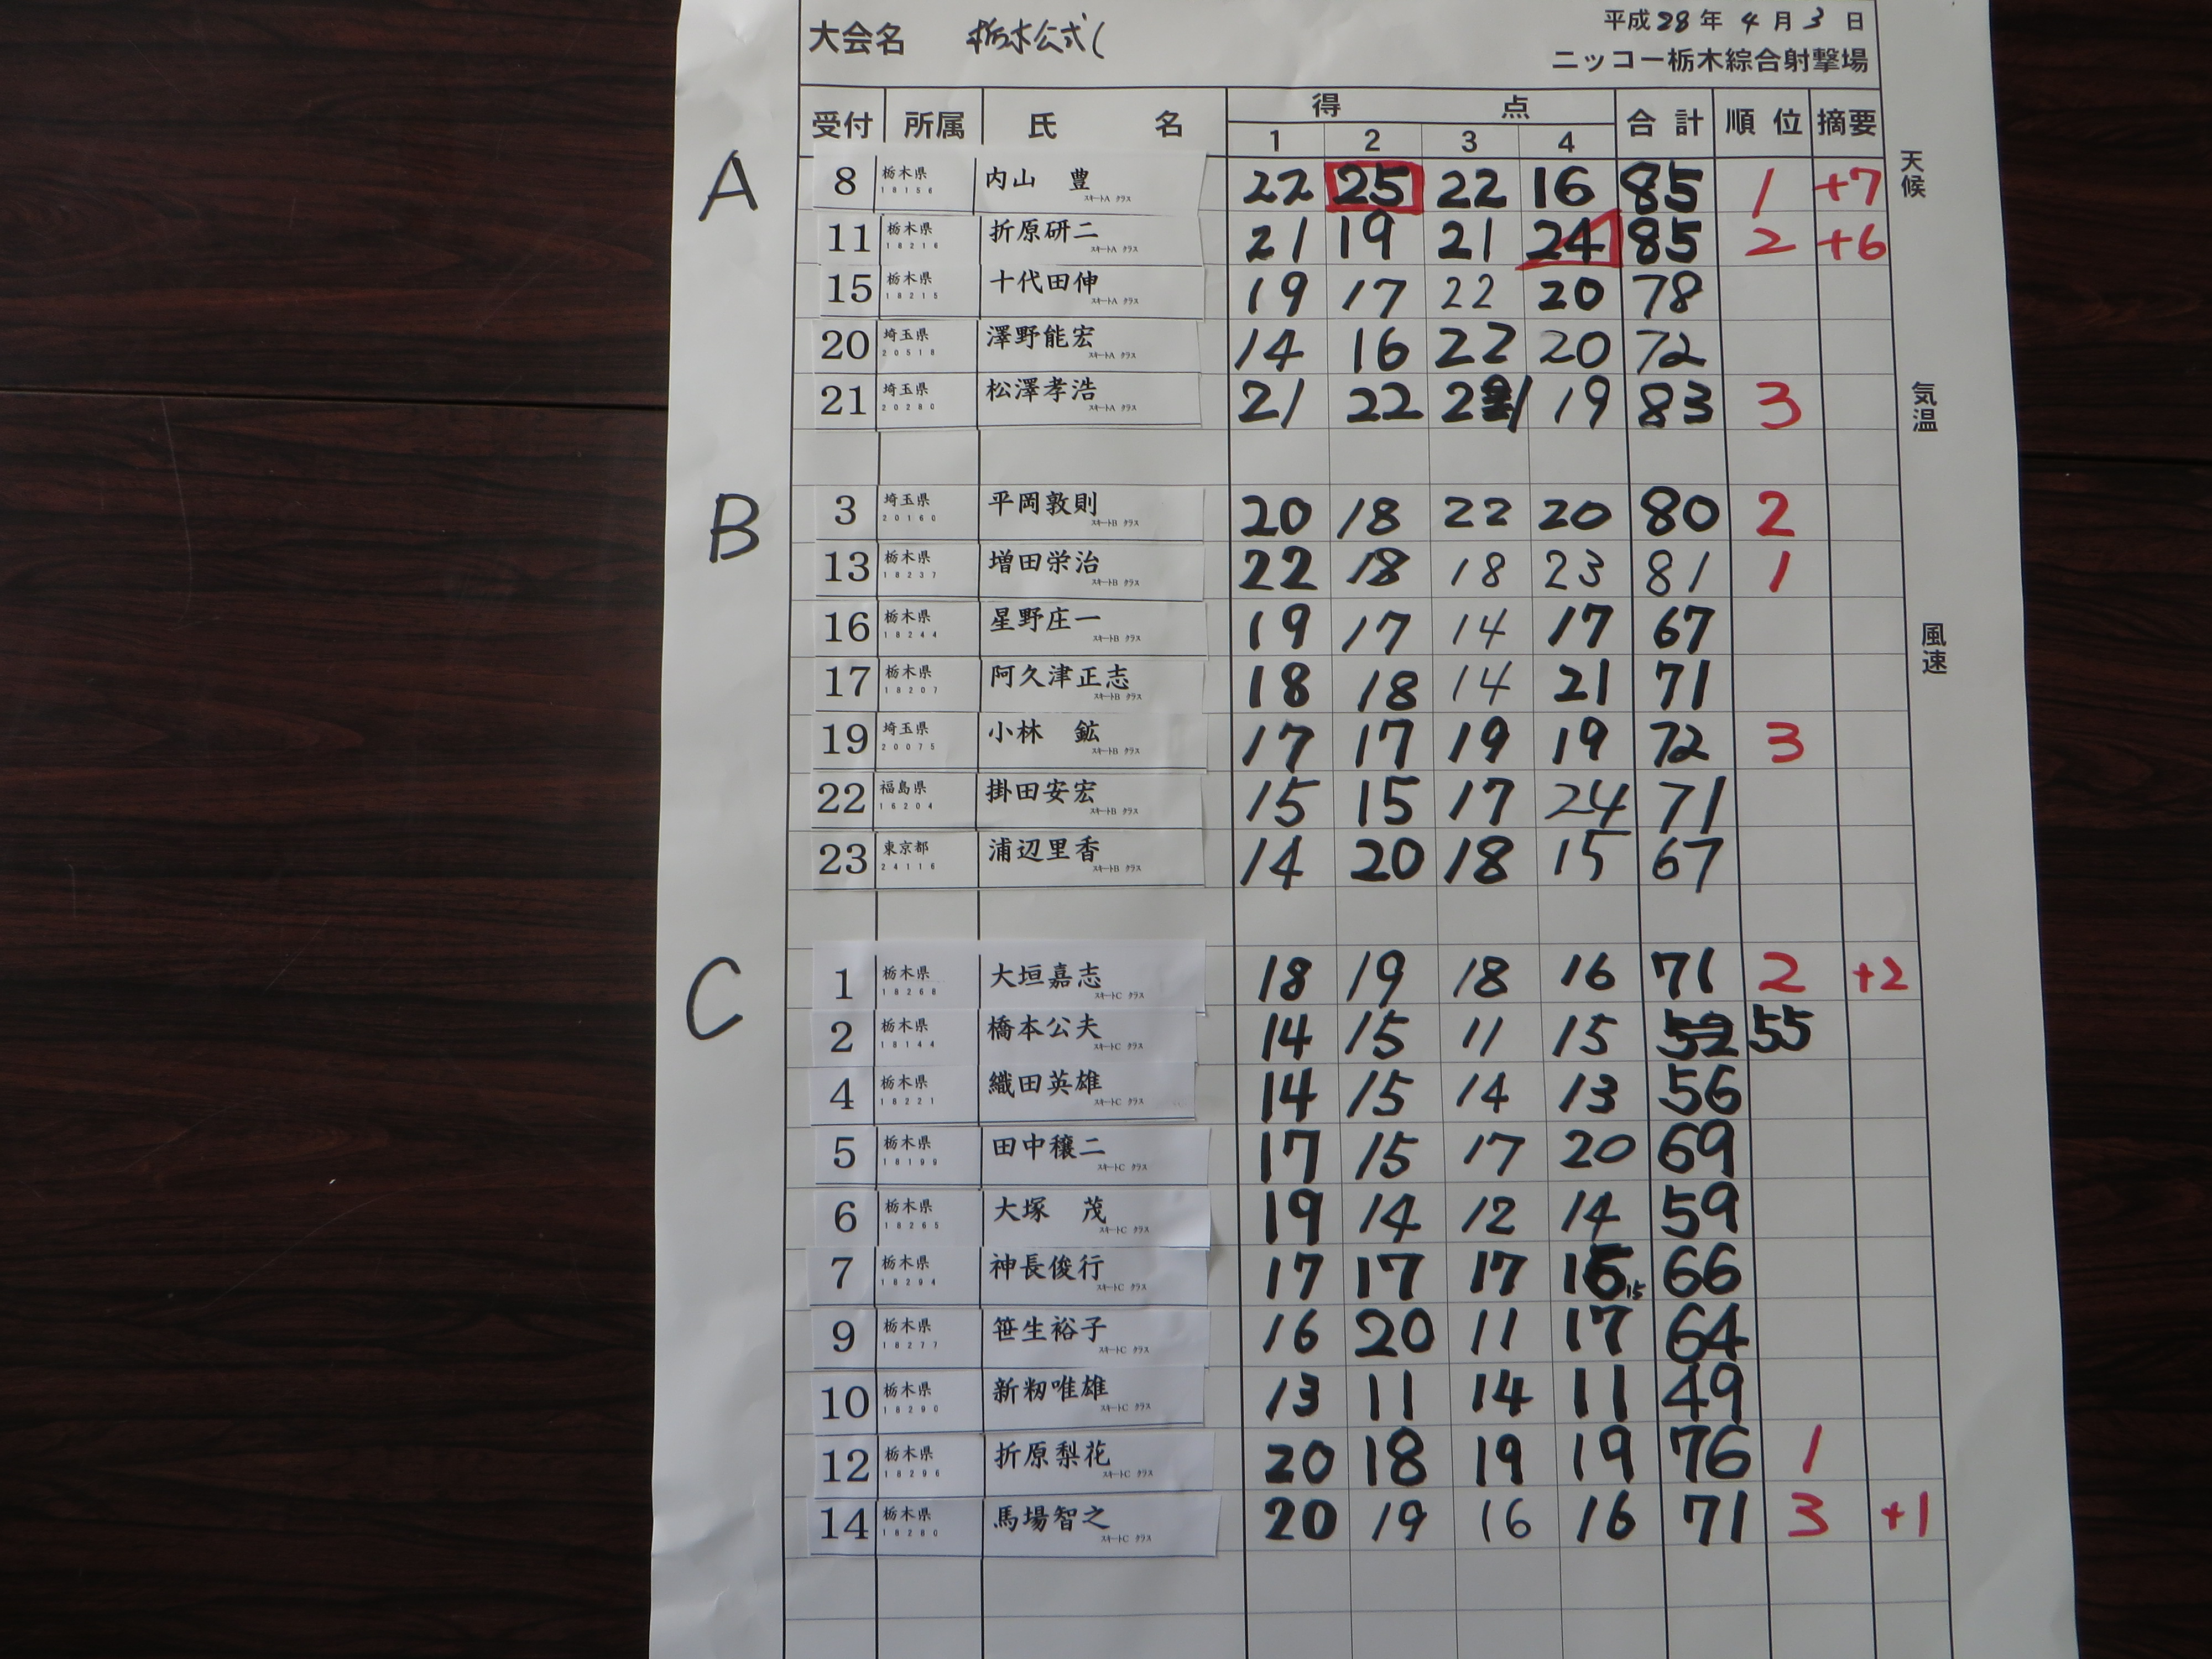 大会名 栃木公式(
平成28年4月3日
ニッコー栃木綜合射撃場
受付 所属 氏名 得点 合計 順位 摘要
1 2 3 4
天候
気温
風速
A
8 栃木県 18156 内山 豊 スキートA クラス 22 25 22 16 85 1 +7
11 栃木県 18216 折原研二 スキートA クラス 21 19 21 24 85 2 +6
15 栃木県 18215 十代田伸 スキートA クラス 19 17 22 20 78
20 埼玉県 20518 澤野能宏 スキートA クラス 14 16 22 20 72
21 埼玉県 20280 松澤孝浩 スキートA クラス 21 22 21 19 83 3
B
3 埼玉県 20160 平岡敦則 スキートB クラス 20 18 22 20 80 2
13 栃木県 18237 増田栄治 スキートB クラス 22 18 18 23 81 1
16 栃木県 18244 星野庄一 スキートB クラス 19 17 14 17 67
17 栃木県 18207 阿久津正志 スキートB クラス 18 18 14 21 71
19 埼玉県 20075 小林 鉱 スキートB クラス 17 17 19 19 72 3
22 福島県 16204 掛田安宏 スキートB クラス 15 15 17 24 71
23 東京都 24116 浦辺里香 スキートB クラス 14 20 18 15 67
C
1 栃木県 18268 大垣嘉志 スキートC クラス 18 19 18 16 71 2 +2
2 栃木県 18144 橋本公夫 スキートC クラス 14 15 11 15 52 55
4 栃木県 18221 織田英雄 スキートC クラス 14 15 14 13 56
5 栃木県 18199 田中穣二 スキートC クラス 17 15 17 20 69
6 栃木県 18265 大塚 茂 スキートC クラス 19 14 12 14 59
7 栃木県 18294 神長俊行 スキートC クラス 17 17 17 15 15 66
9 栃木県 18277 笹生裕子 スキートC クラス 16 20 11 17 64
10 栃木県 18290 新籾唯雄 スキートC クラス 13 11 14 11 49
12 栃木県 18296 折原梨花 スキートC クラス 20 18 19 19 76 1
14 栃木県 18280 馬場智之 スキートC クラス 20 19 16 16 71 3 +1